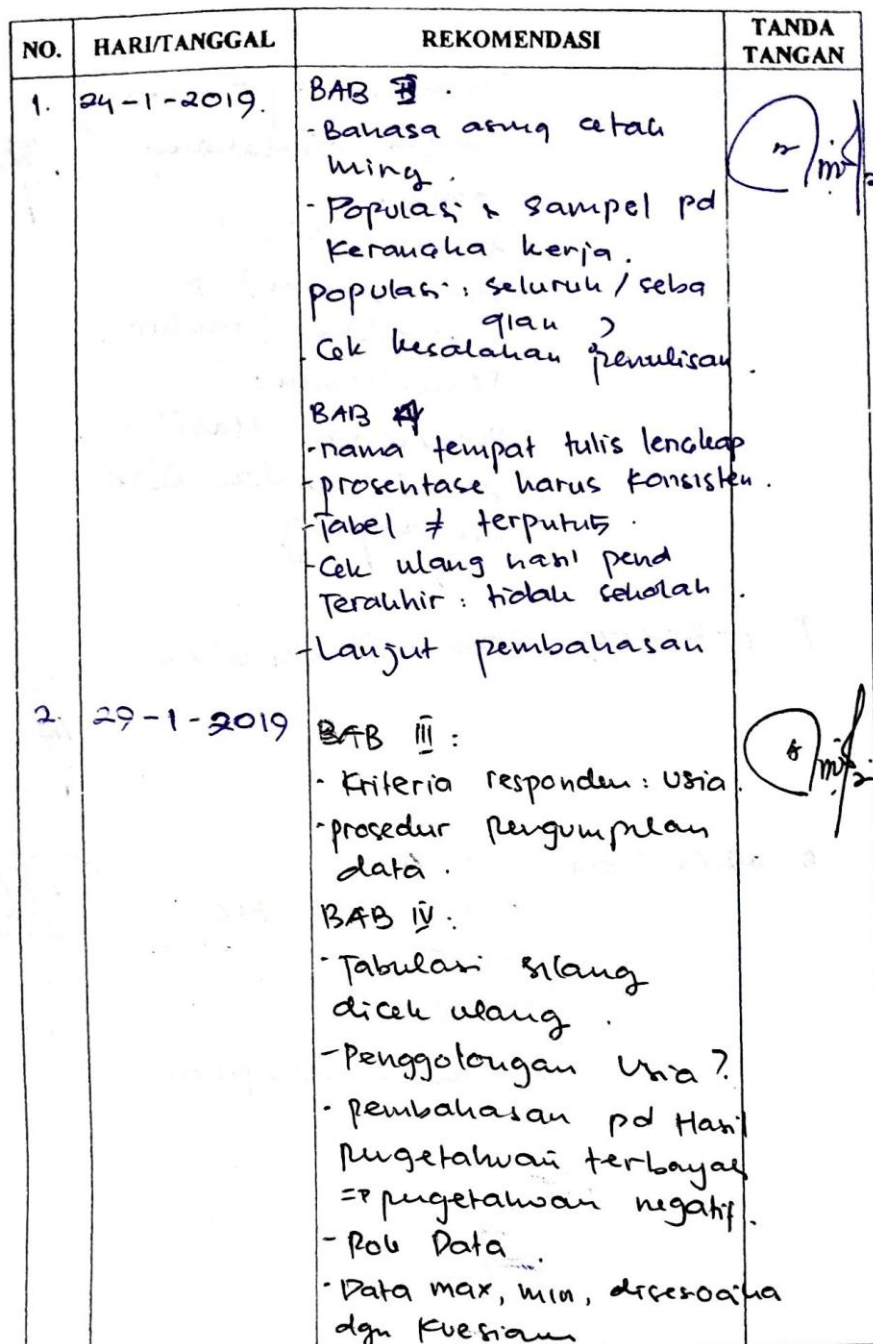 NO. HARI/TANGGAL REKOMENDASI TANDA TANGAN
1. 24-1-2019. BAB
- Bahasa asing cetak
miring.
- Populasi & sampel pd
kerangka kerja.
populasi: seluruh / seba
gian ?
. Cek kesalahan penulisan.
BAB
- nama tempat tulis lengkap
- prosentase harus konsisten.
- Tabel ≠ terputus.
- Cek ulang hasil pend
Terakhir: tidak sekolah.
- Lanjut pembahasan
2. 29-1-2019 BAB III:
- Kriteria responden: usia.
- prosedur pengumpulan
data.
BAB IV:
- Tabulasi silang
dicek ulang.
- Penggolongan usia?
- pembahasan pd Hasil
pengetahuan
=> pengetahuan negatif.
- Data.
- Data max, min,
dgn